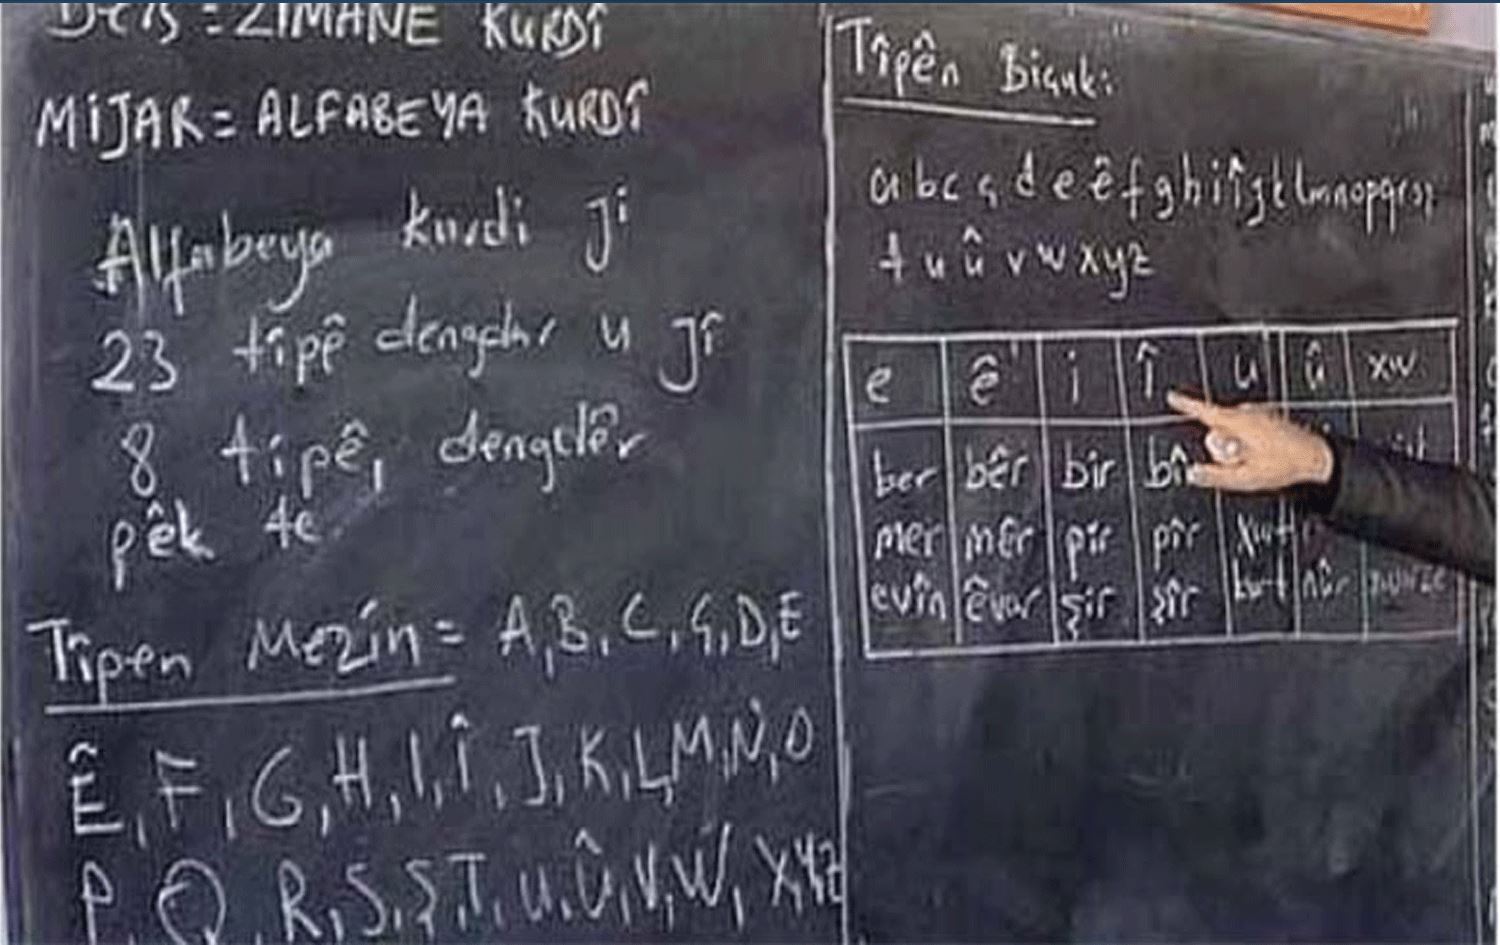 Ders = ZIMANE KURDÎ
MiJAR = ALFABEYA KURDÎ
Alfabeya kurdi ji
23 tîpê dengdar u jî
8 tipê, dengdêr
pêk te
Tîpen Mezín = A, B, C, Ç, D, E
Ê, F, G, H, I, Î, J, K, L, M, N, O
P, Q, R, S, Ş, T, U, Û, V, W, X, Y, Z
Tîpên Biçuk:
a b c ç d e ê f g h i î j k l m n o p q r s ş
t u û v w x y z
e ê i î u û xw
ber bêr bir
mer mêr pir pîr
evîn êvar şir şîr nûr